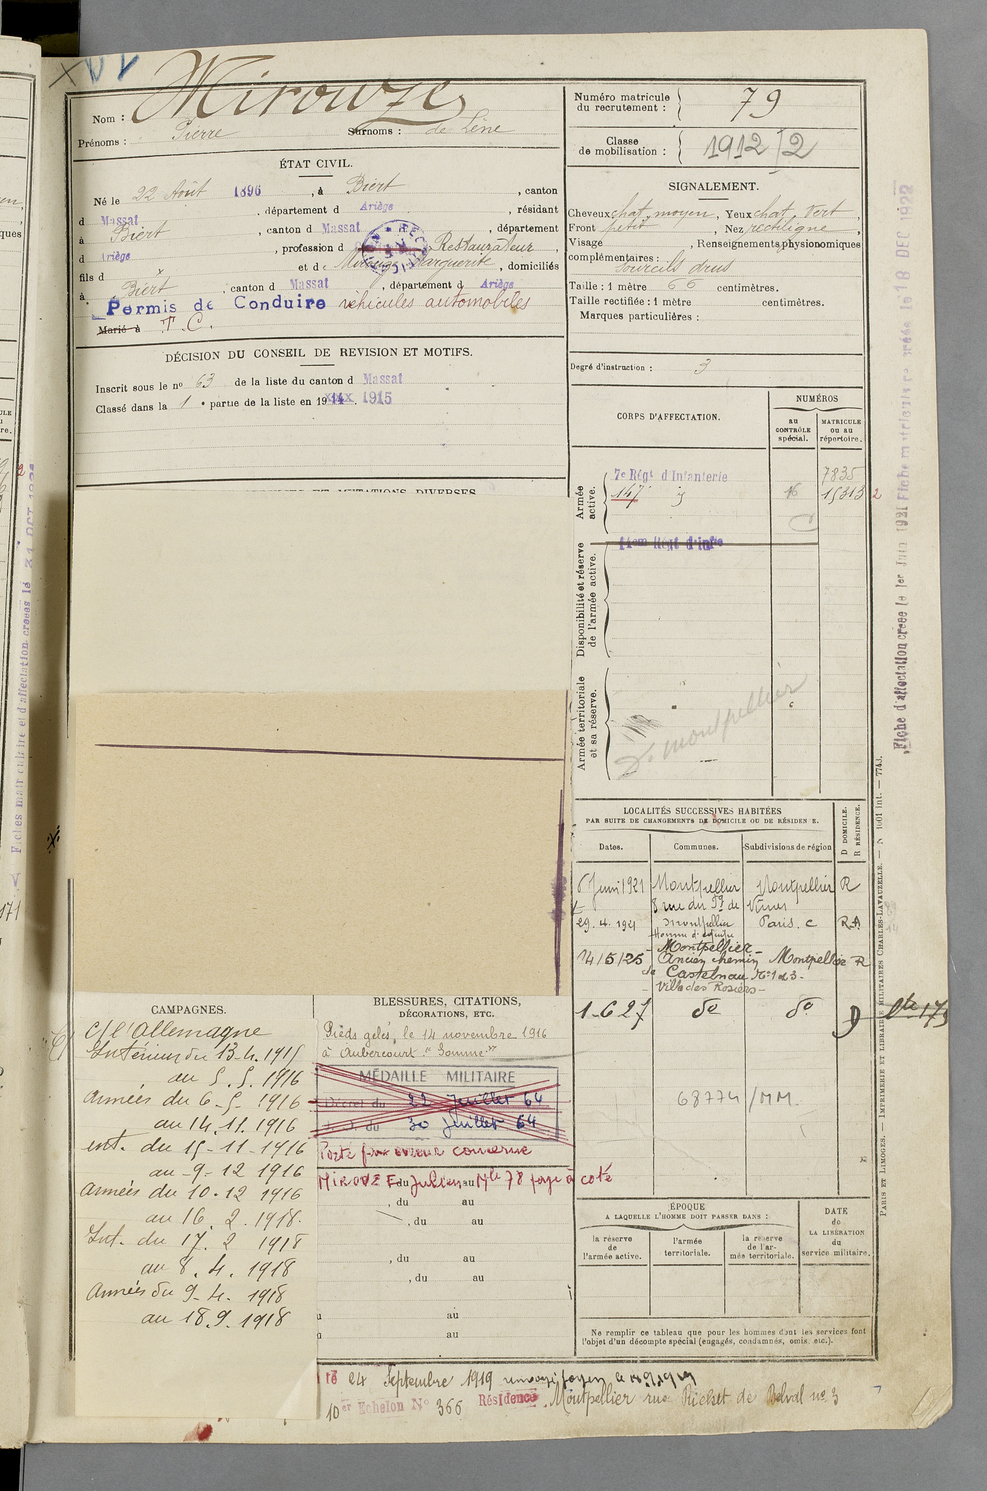 Nom : Mirouze
Prénoms : Pierre Surnoms : de Line
ÉTAT CIVIL.
Né le 22 Août 1896, à Biert, canton
d Massat, département d Ariège, résidant
à Biert, canton d Massat, département
d Ariège, profession d Restaurateur,
fils d x et de Mirouze Marguerite, domiciliés
à Biert, canton d Massat, département d Ariège
Permis de Conduire véhicules automobiles
Marié à T.C.
DÉCISION DU CONSEIL DE REVISION ET MOTIFS.
Inscrit sous le nº 63 de la liste du canton d Massat
Classé dans la 1 e partie de la liste en 1914. 1915
Numéro matricule
du recrutement : 79
Classe
de mobilisation : 1912/2
SIGNALEMENT.
Cheveux chat. moyen, Yeux chat. vert,
Front petit, Nez rectiligne,
Visage , Renseignements physionomiques
complémentaires :
Sourcils drus
Taille : 1 mètre 66 centimètres.
Taille rectifiée : 1 mètre centimètres.
Marques particulières :
Degré d'instruction : 3
CORPS D'AFFECTATION.
NUMÉROS
au
CONTRÔLE
spécial.
MATRICULE
ou au
répertoire.
Armée
active.
7e Régt d'Infanterie 7835
147 16 15313 2
Disponibilité et réserve
de l'armée active.
Armée territoriale
et sa réserve.
D. Montpellier
LOCALITÉS SUCCESSIVES HABITÉES
PAR SUITE DE CHANGEMENTS DE DOMICILE OU DE RÉSIDENCE.
D DOMICILE.
R RÉSIDENCE.
Dates. Communes. Subdivisions de région
6 Juin 1921 Montpellier Montpellier R
8 rue du
29.4.1921 Montpellier Paris. C
14/5/25 Montpellier Montpellier R
Ancien chemin
de Castelnau Nº 1 et 3
Villa des Rosiers
1-6 27 do do D
68774/MM.
CAMPAGNES.
C/l'Allemagne
Intérieur du 13-4.1915
au 5.5.1916
Armées du 6-5-1916
au 14.11.1916
int. du 15-11-1916
au -9-12 1916
Armées du 10.12 1916
au 16.2.1918.
Int. du 17.2 1918
au 8.4.1918
Armées du 9-4.1918
au 18.9.1918
BLESSURES, CITATIONS,
DÉCORATIONS, ETC.
Pieds gelés, le 14 novembre 1916
à Aubercourt "Somme"
MÉDAILLE MILITAIRE
Décret du 22 Juillet 64
J.O. du 30 Juillet 64
Porté par erreur concerne
MIROUZE Julien Mle 78 page à coté
, du au
, du au
, du au
, du au
au
au
ÉPOQUE
A LAQUELLE L'HOMME DOIT PASSER DANS :
la réserve
de
l'armée active.
l'armée
territoriale.
la réserve
de l'ar-
mée territoriale.
DATE
de
LA LIBÉRATION
du
service militaire.
Ne remplir ce tableau que pour les hommes dont les services font
l'objet d'un décompte spécial (engagés, condamnés, omis, etc.).
24 Septembre 1919
10 er Echelon Nº 366 Résidence Montpellier rue de Belval nº 3
Fiche d'affectation créée le 1er Juin 1921 Fiche matriculaire créée le 18 DEC 1922
PARIS ET LIMOGES. — IMPRIMERIE ET LIBRAIRIE MILITAIRES CHARLES-LAVAUZELLE. — N 1001 int. — 7743.